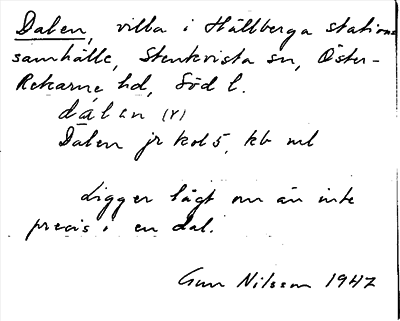 Dalen, villa i Hällberga stations
samhälle, Stenkvista sn, Öster-
Rekarne hd, Söd l.
dálen (Y)
Dalen jr kol 5, kb ml
Ligger lågt om än inte
precis i en dal.
Gun Nilsson 1947